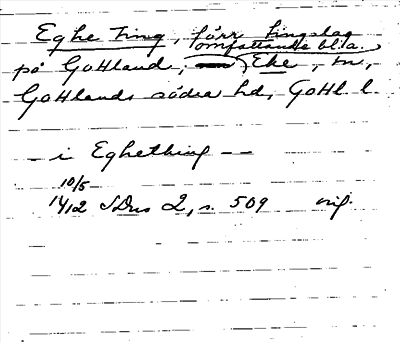 Eghe ting, förr tingslag
omfattande bl.a.
på Gottland, Eke, sn,
Gottlands södra hd, Gottl. l.
— i Eghething — —
10/5
1412 SDns 2, s. 509 orig.